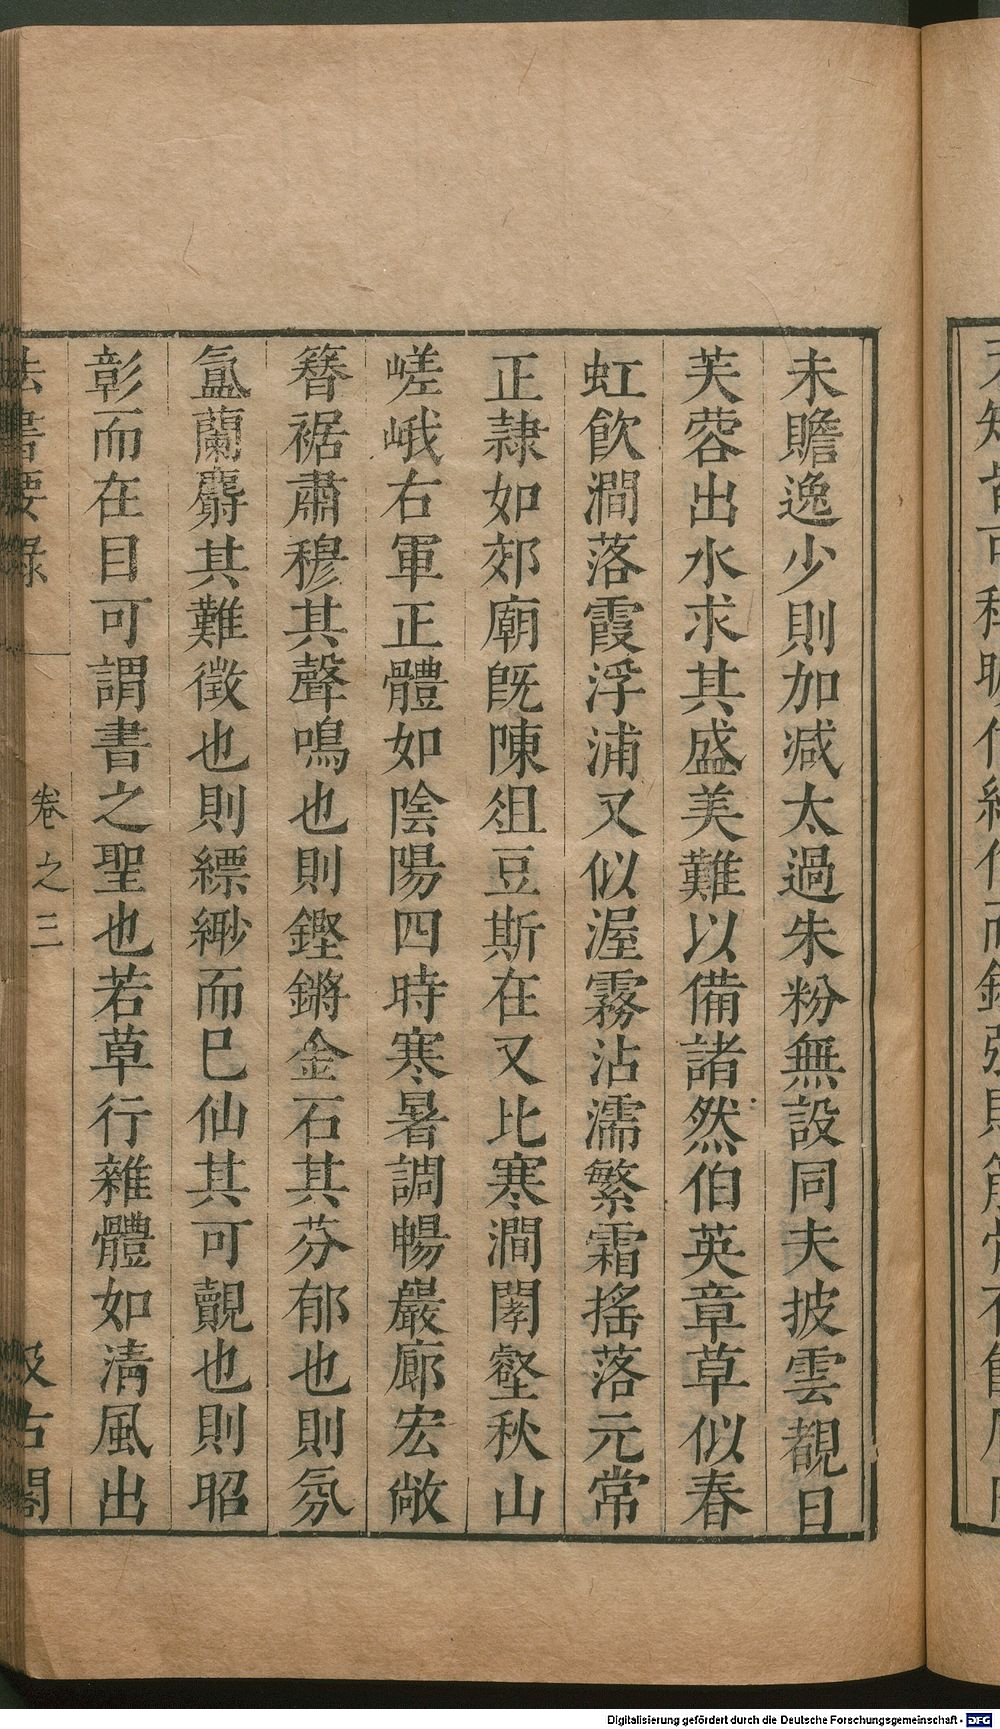 未贍逸少則加减太過朱粉無設同夫披雲覩日
芙蓉出水求其盛美難以備諸然伯英章草似春
虹飲澗落霞浮浦又似渥霧沾濡繁霜搖落元常
正隷如郊廟旣陳俎豆斯在又比寒澗閴壑秋山
嵯峨右軍正體如陰陽四時寒暑調暢巖廊宏敞
簪裾肅穆其聲鳴也則鏗鏘金石其芬郁也則氛
氳蘭麝其難徵也則縹緲而巳仙其可覿也則昭
彰而在目可謂書之聖也若草行雜體如淸風出
法書要錄 卷之三 汲古閣
Digitalisierung gefördert durch die Deutsche Forschungsgemeinschaft - DFG